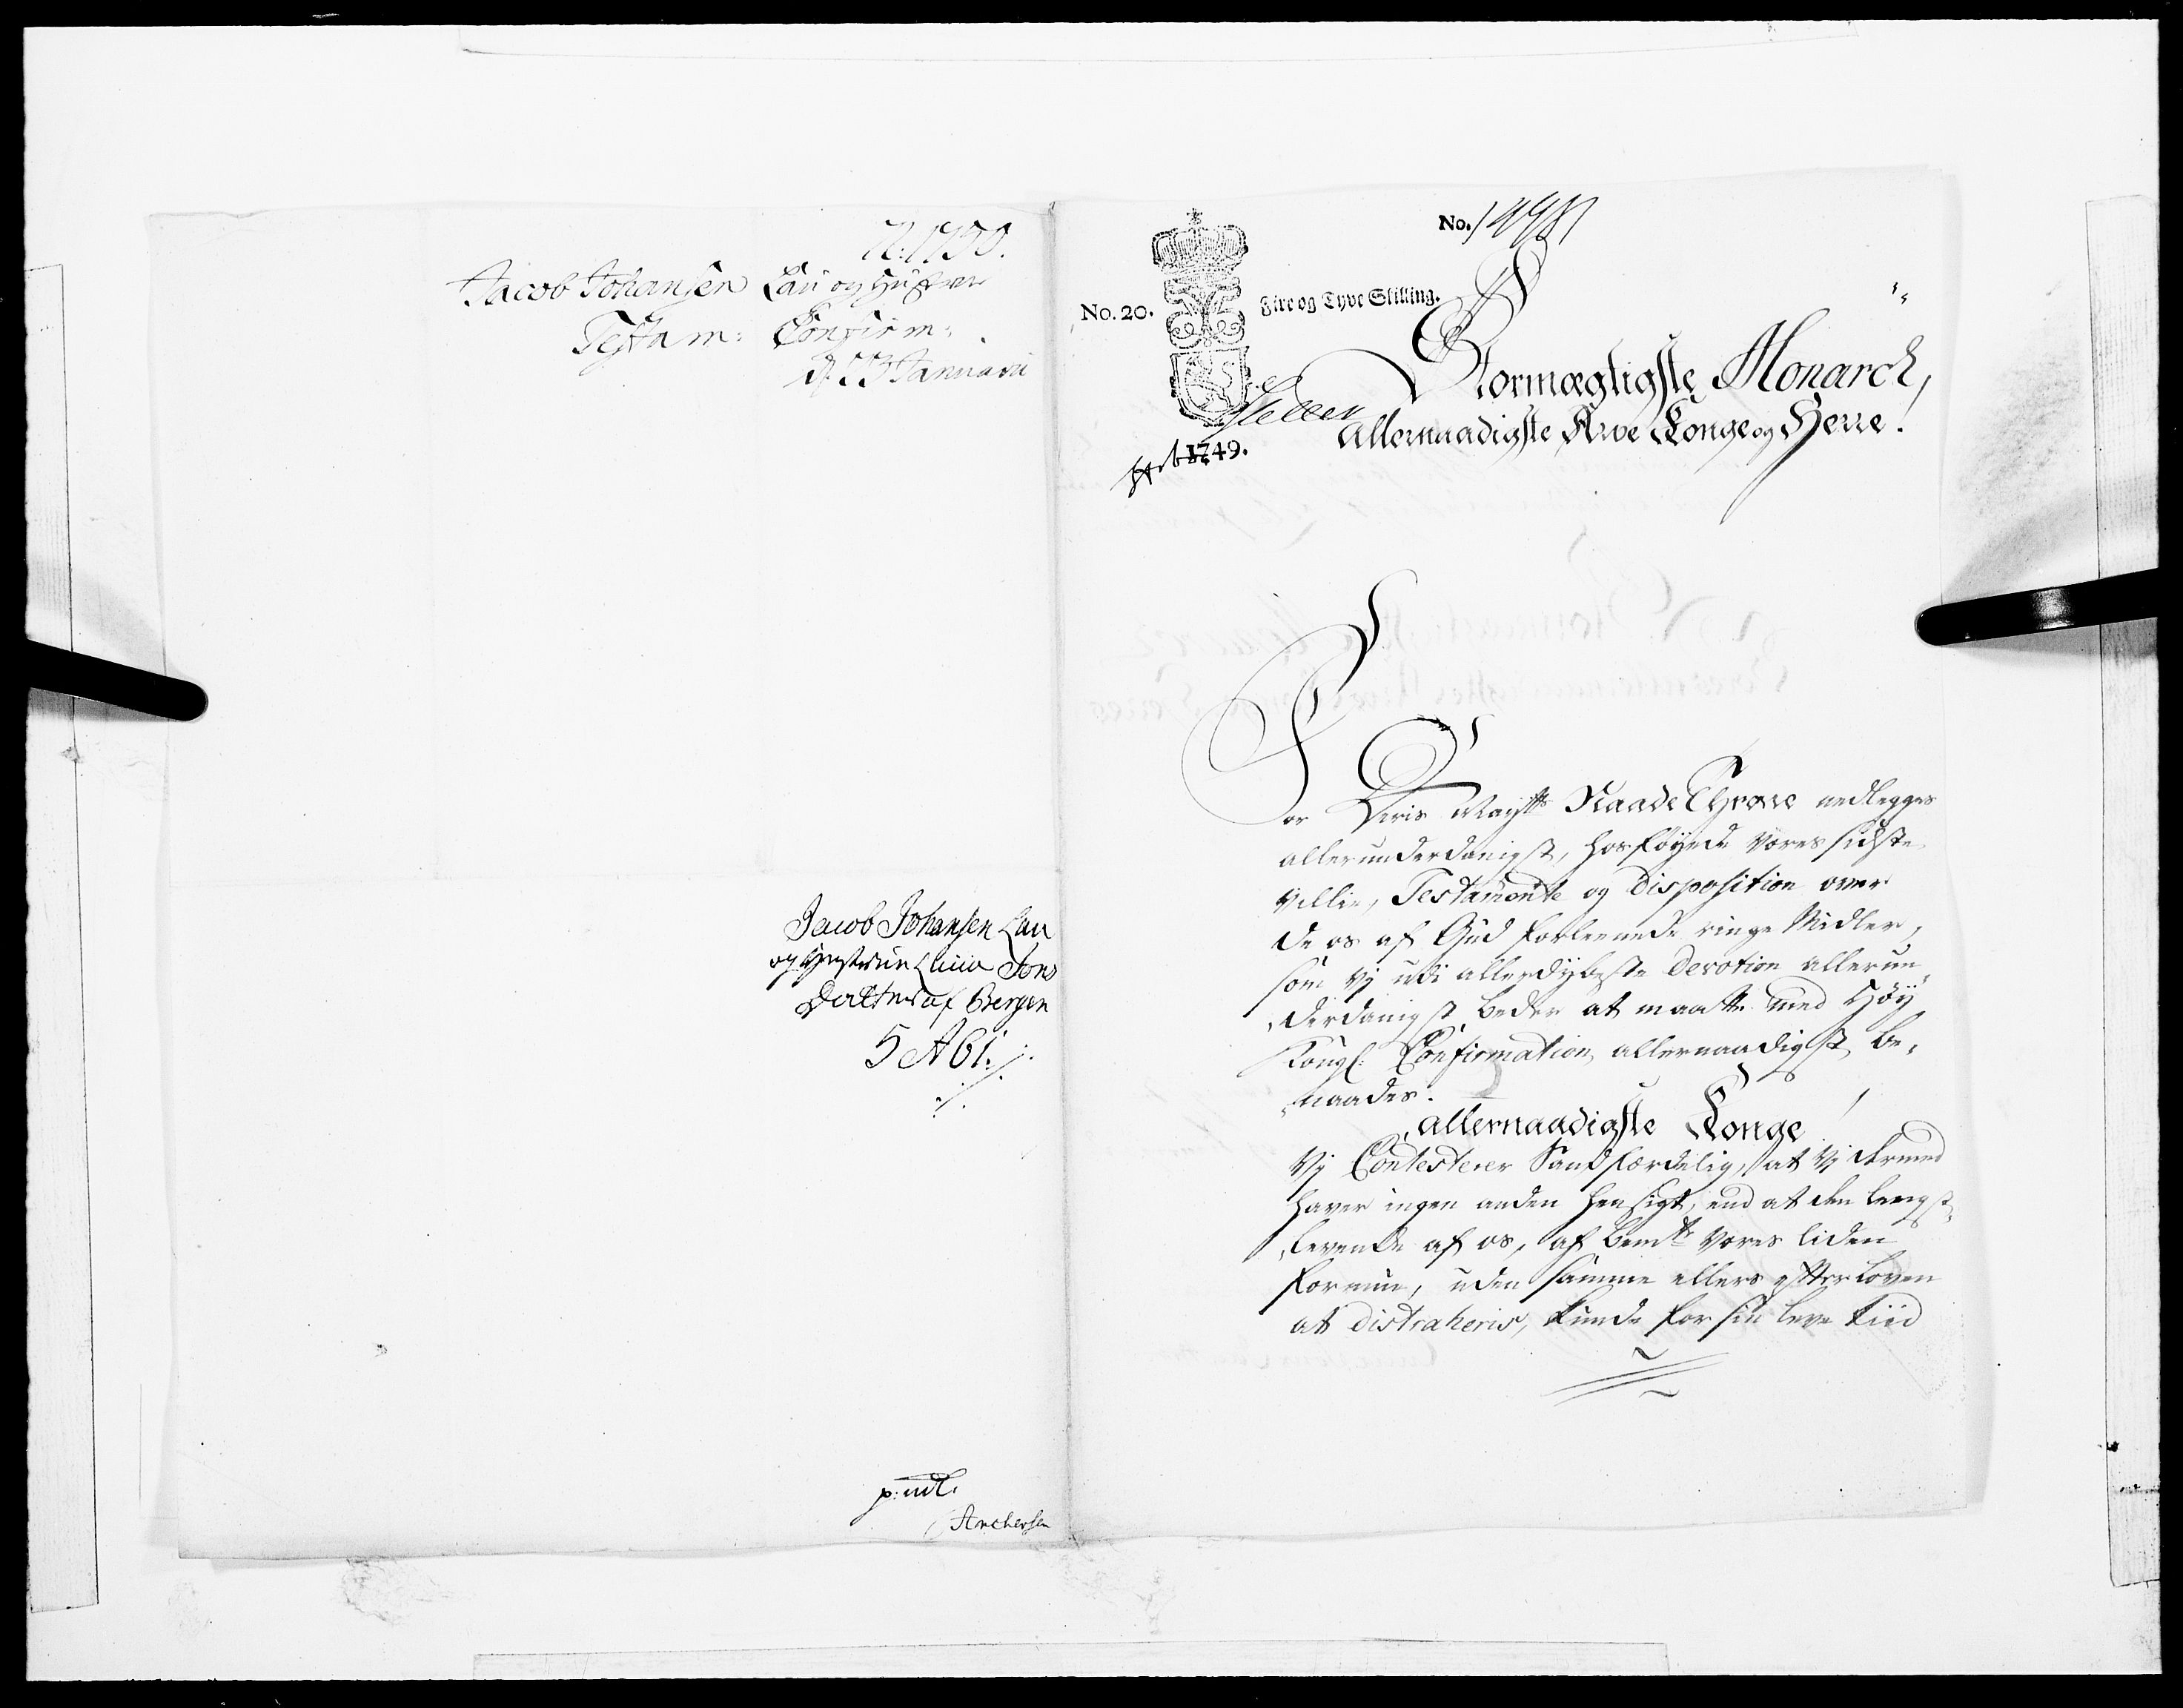 N: 1750.
Jacob Johansen Lau og Hustrue
Testam: Confirm:
d: 23 Januarii
Jacob Johansen Lau
og Hustrue Jons
Datter af Bergen
5 Abl.
p: md.
Anchersen
No. 14981
No. 20.
Fire og Tyve Skilling.
1749.
Stormægtigste Monarch,
Allernaadigste Arve Konge og Herre!
For Deris Mayts Naade Throne nedlegges
allerunderdanigst, hosføyede vores sidste
villie, Testamente og Disposition over
de os af Gud forleenede ringe Midler,
som vj udi allerdybeste Devotion allerun-
derdanigst beder at maatte med Høy
Kongl: Confirmation allernaadigst be-
naades.
Allernaadigste Konge!
Vj Contesterer Sandfærdelig, at vj dermed
haver ingen anden hensigt, end at den lengst-
levende af os, af bemte vores liden
formue, uden samme ellers efter loven
at distraheris, kunde for sin leve tiid